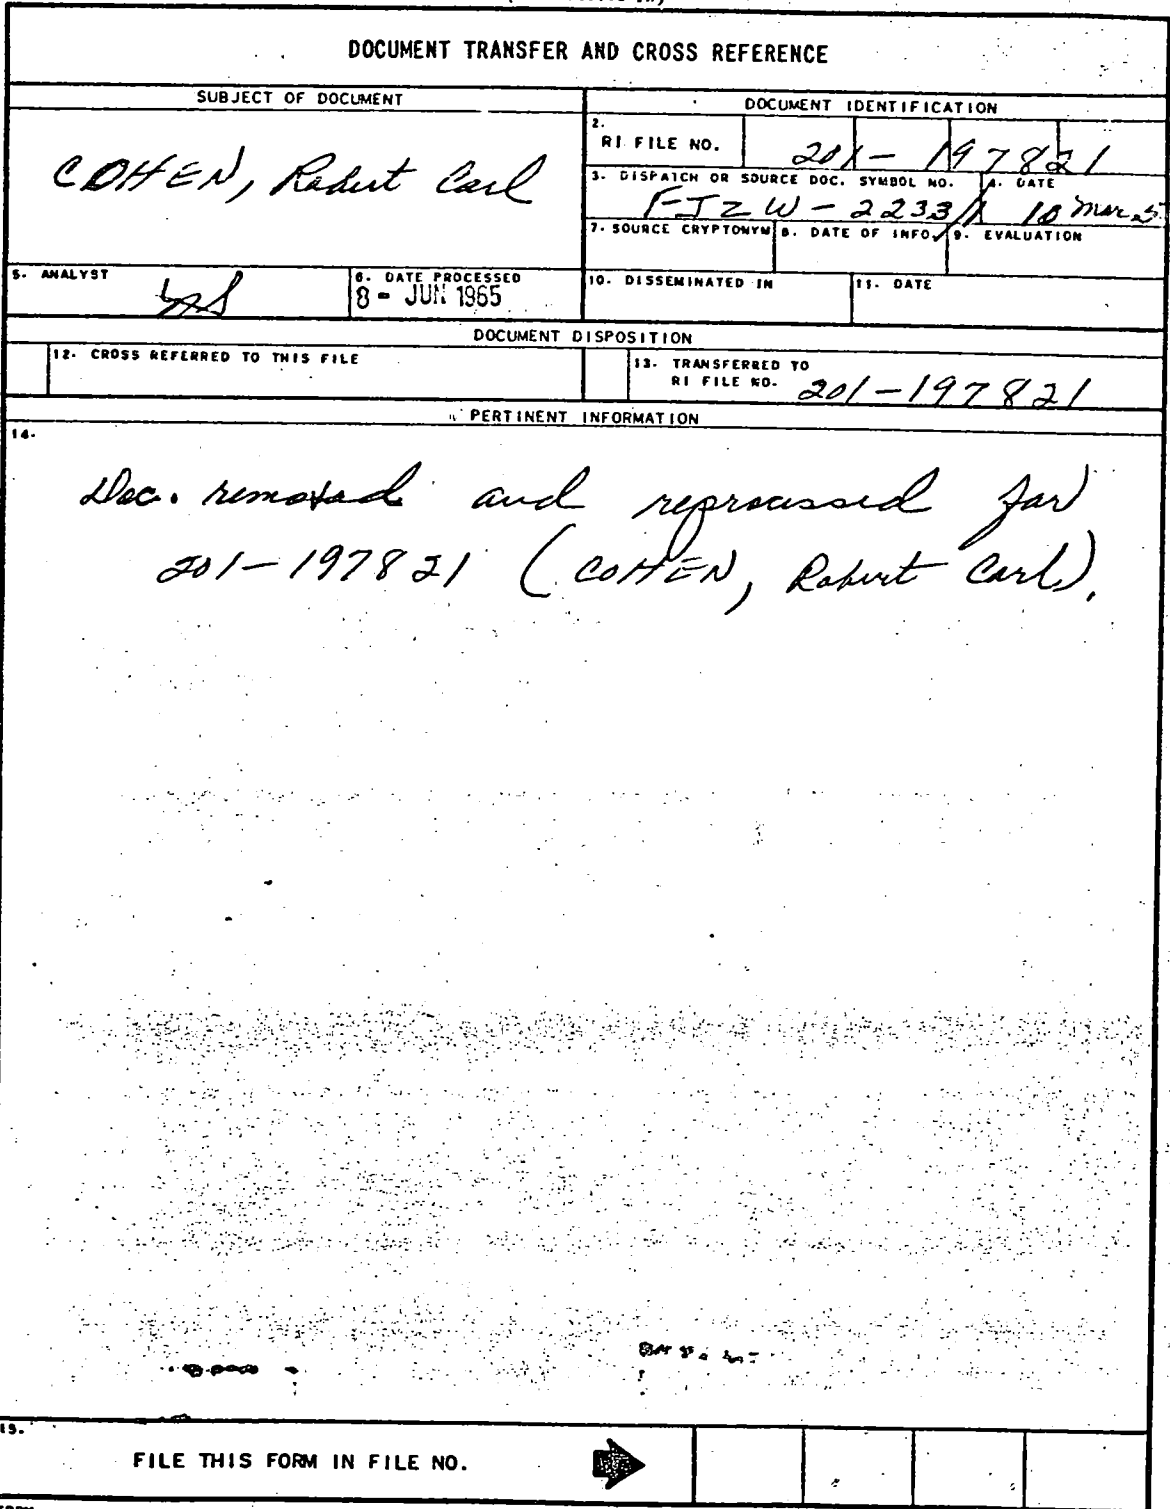 DOCUMENT TRANSFER AND CROSS REFERENCE
SUBJECT OF DOCUMENT
DOCUMENT IDENTIFICATION
COHEN, Robert Carl
2. RI FILE NO. 201-197821
3. DISPATCH OR SOURCE DOC. SYMBOL NO. 4. DATE
FJZW-2233 10 Mar
7. SOURCE CRYPTONYM 8. DATE OF INFO. 9. EVALUATION
5. ANALYST
6. DATE PROCESSED
8 - JUN 1965
10. DISSEMINATED IN 11. DATE
DOCUMENT DISPOSITION
12. CROSS REFERRED TO THIS FILE
13. TRANSFERRED TO
RI FILE NO. 201-197821
PERTINENT INFORMATION
14.
Doc. removed and reprocessed for
201-197821 (COHEN, Robert Carl).
15.
FILE THIS FORM IN FILE NO.